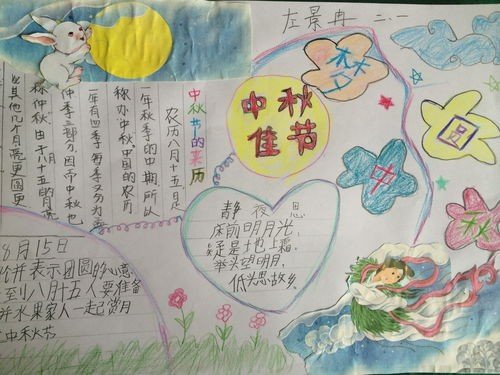 左景冉 二.1
中秋佳节
梦
圆
中
秋
中秋节的来历
农历八月十五是
一年秋季的中期，所以
称办中秋中国的农历
一年有四季每季又分为孟
仲季三部分，因而中秋也
称仲秋，由于八月十五的月亮
比其他几个月亮更圆更
静夜思
床前明月光，
疑是地上霜。
举头望明月，
低头思故乡。
8月15日
并表示团圆的心意
至小八月十五人要准备
并水果家人一起赏月
中秋节